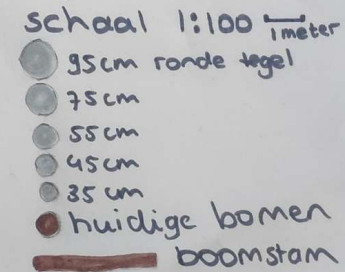 schaal 1:100
1 meter
95cm ronde tegel
75 cm
55 cm
45cm
35 cm
huidige bomen
boomstam